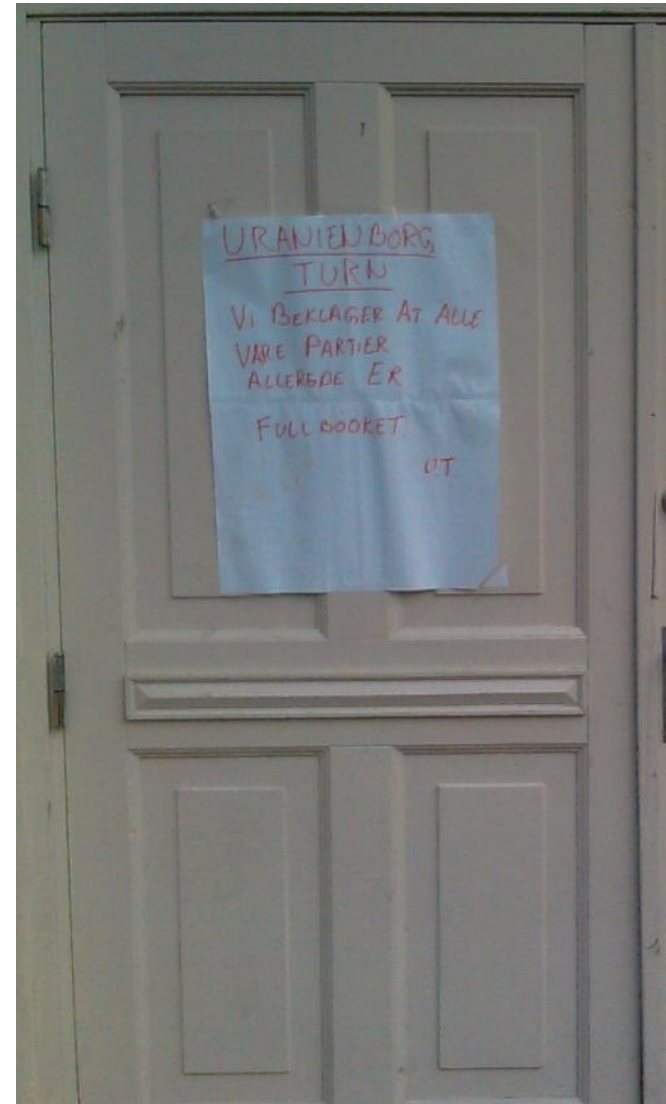 URANIENBORG
TURN
VI BEKLAGER AT ALLE
VARE PARTIER
ALLEREDE ER
FULLBOOKET
UT